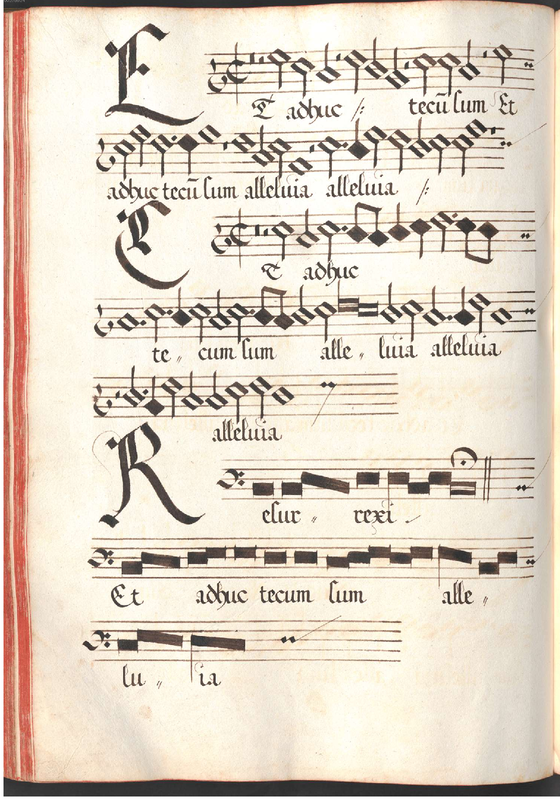 ET adhuc /: tecū sum Et
adhuc tecū sum alleluia alleluia /:
ET adhuc
te〃 cum sum alle〃 luia alleluia
alleluia
Resur〃 rexi
Et adhuc tecum sum alle〃
lu〃 ia